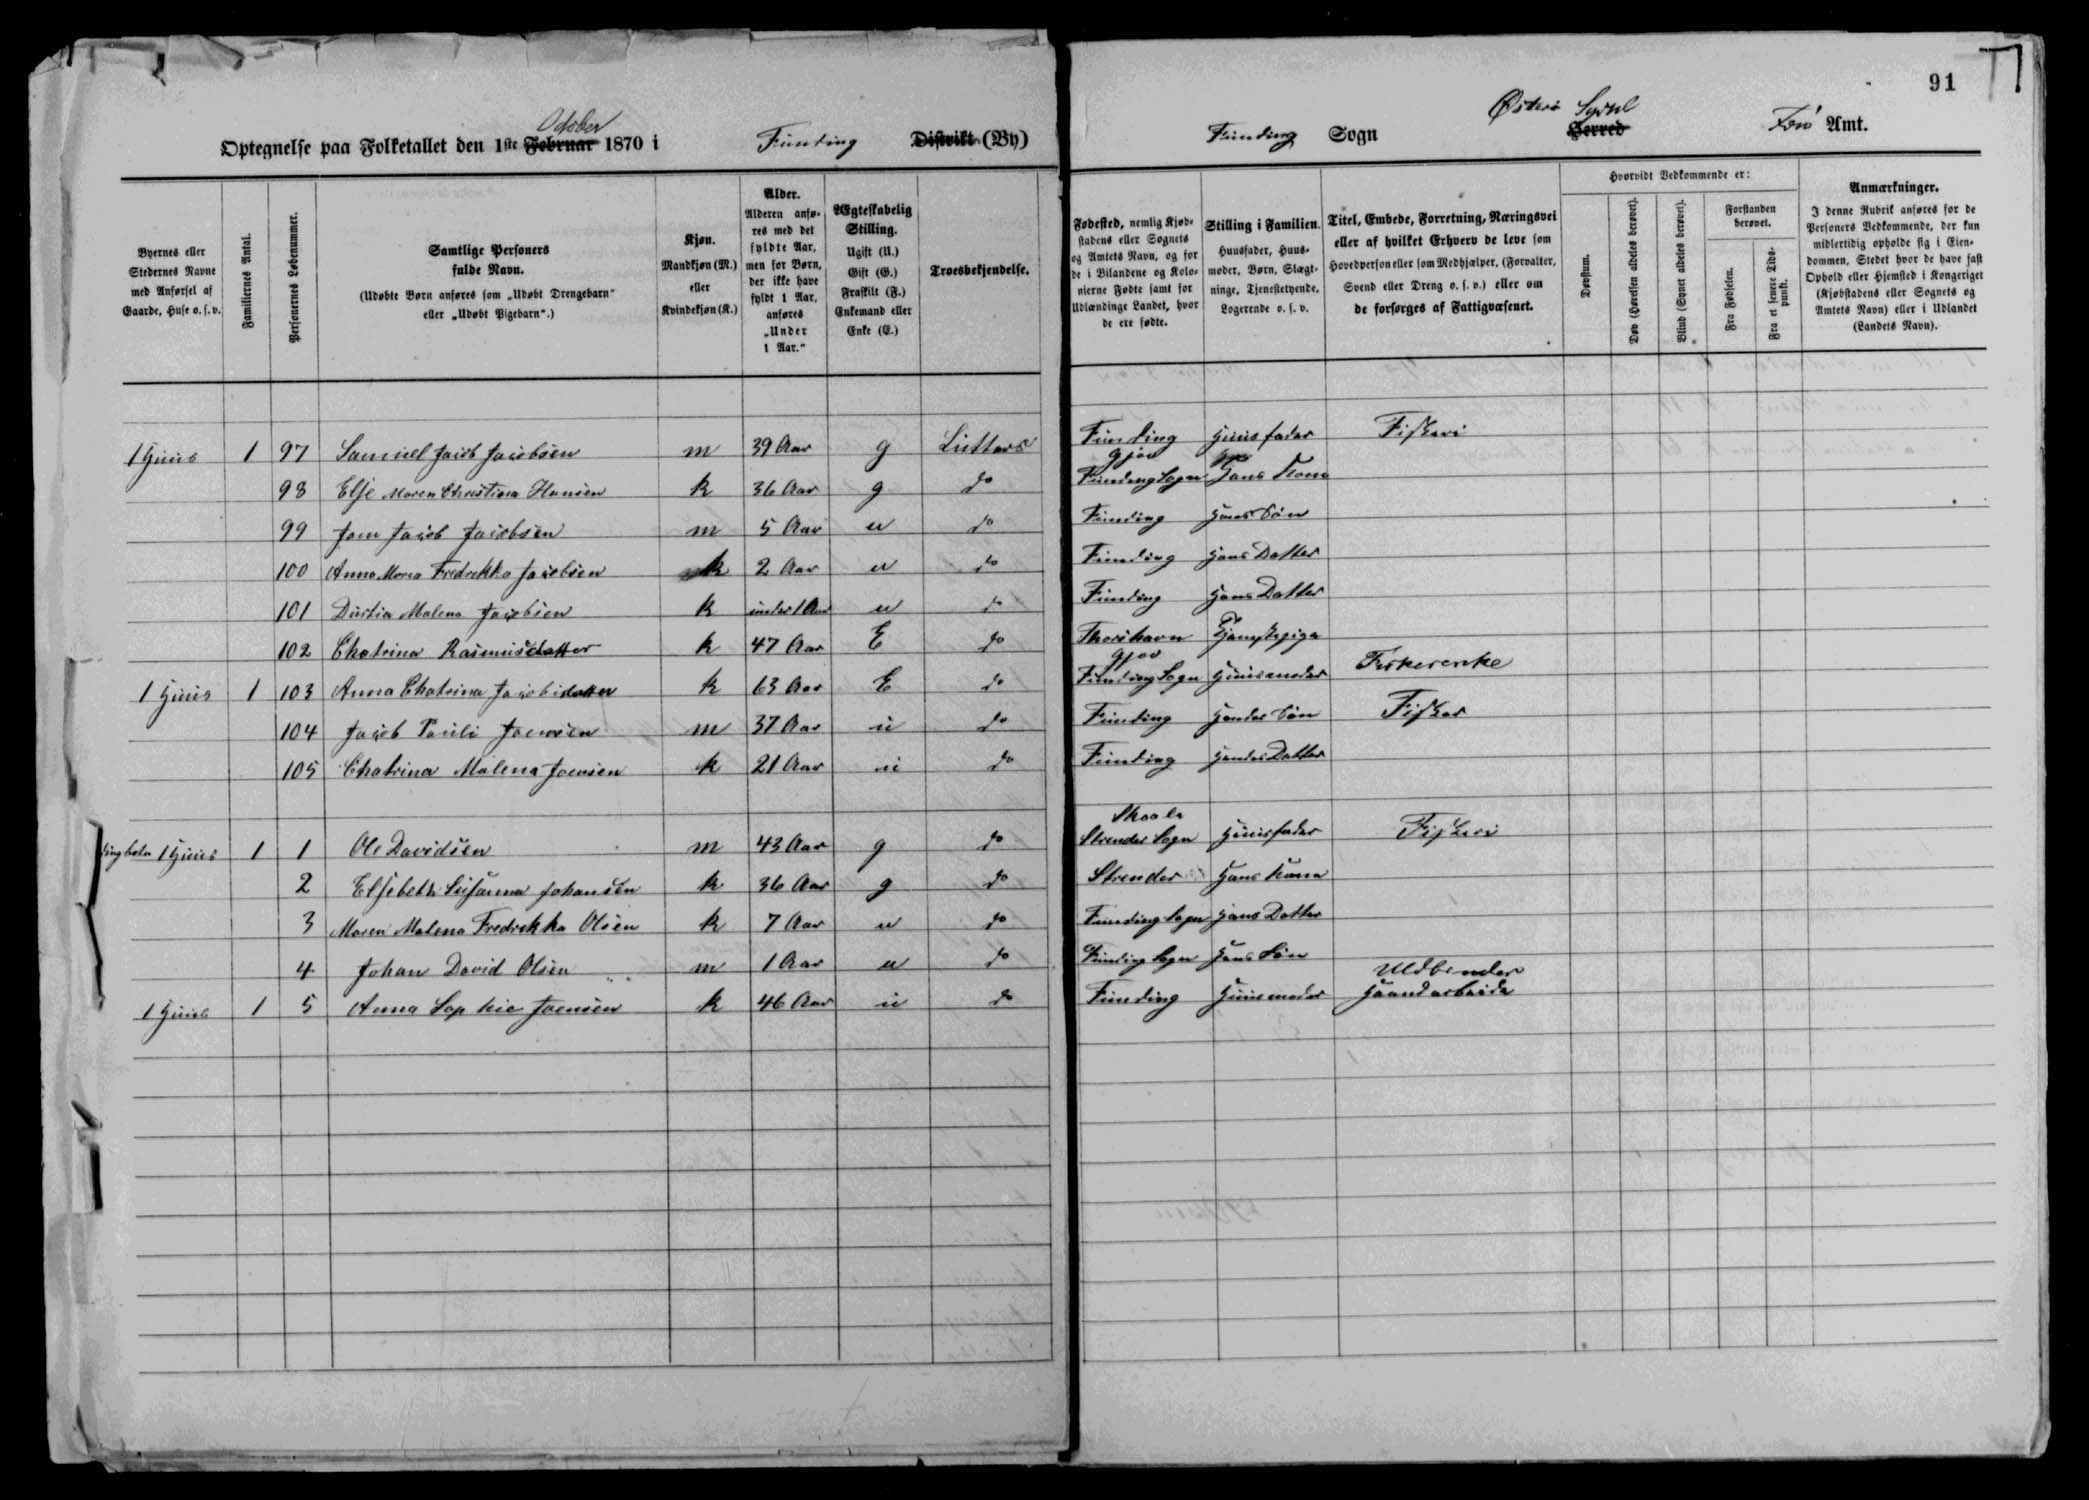 91
October
Optegnelse paa Folketallet den 1ste Februar 1870 i Funding Distrikt (By)
Funding Sogn Østerø Syssel Herred Færø Amt.
Byernes eller Stedernes Navne med Anførsel af Gaarde, Huse o. s. v.
Familiernes Antal.
Personernes Løbenummer.
Samtlige Personers fulde Navn.
(Udøbte Børn anføres som „Udøbt Drengebarn“ eller „Udøbt Pigebarn“.)
Kjøn.
Mandkjøn (M.) eller Kvindekjøn (K.)
Alder.
Alderen anføres med det fyldte Aar, men for Børn, der ikke have fyldt 1 Aar, anføres „Under 1 Aar.“
Ægteskabelig Stilling.
Ugift (U.) Gift (G.) Fraskilt (F.) Enkemand eller Enke (E.)
Troesbekjendelse.
Fødested, nemlig Kjøbstadens eller Sognets og Amtets Navn, og for de i Bilandene og Kolonierne Fødte samt for Udlændinge Landet, hvor de ere fødte.
Stilling i Familien.
Huusfader, Huusmoder, Børn, Slægtninge, Tjenestetyende, Logerende o. s. v.
Titel, Embede, Forretning, Næringsvei eller af hvilket Erhverv de leve som Hovedperson eller som Medhjælper, (Forvalter, Svend eller Dreng o. s. v.) eller om de forsørges af Fattigvæsenet.
Hvorvidt Vedkommende er:
Døvstum.
Døv (Hørelsen aldeles berøvet).
Blind (Synet aldeles berøvet).
Forstanden berøvet.
Fra Fødselen.
Fra et senere Tidspunkt.
Anmærkninger.
I denne Rubrik anføres for de Personers Vedkommende, der kun midlertidig opholde sig i Eiendommen, Stedet hvor de have fast Ophold eller Hjemsted i Kongeriget (Kjøbstadens eller Sognets og Amtets Navn) eller i Udlandet (Landets Navn).
1 Huus 1 97 Samuel Jacob Jacobsen m 39 Aar g Luthers Funding Huusfader Fiskeri
98 Else Maren Christina Hansen k 36 Aar g do Gjov Funding Sogn Hans Kone
99 Joen Jacob Jacobsen m 5 Aar u do Funding Hans Søn
100 Anna Maria Fredrekka Jacobsen k 2 Aar u do Funding Hans Datter
101 Malena Jacobsen k under 1 Aar u do Funding Hans Datter
102 Chatrina Rasmusdatter k 47 Aar E do Thorshavn
1 Huus 1 103 Anna Chatrina Jacobsdatter k 63 Aar E do Gjov Funding Sogn Huusmoder Fiskerenke
104 Jacob Pauli Joensen m 37 Aar u do Funding Hendes Søn Fisker
105 Chatrina Malena Joensen k 21 Aar u do Funding Hendes Datter
1 Huus 1 1 Ole Davidsen m 43 Aar g do Skaale Strender Sogn Huusfader Fiskeri
2 Elsebeth Susanna Johansen k 36 Aar g do Strender Hans Kone
3 Maren Malena Fredrekka Olsen k 7 Aar u do Funding Sogn Hans Datter
4 Johan David Olsen m 1 Aar u do Funding Sogn Hans Søn
1 Huus 1 5 Anna Sophie Joensen k 46 Aar u do Funding Huusmoder Haandarbeide